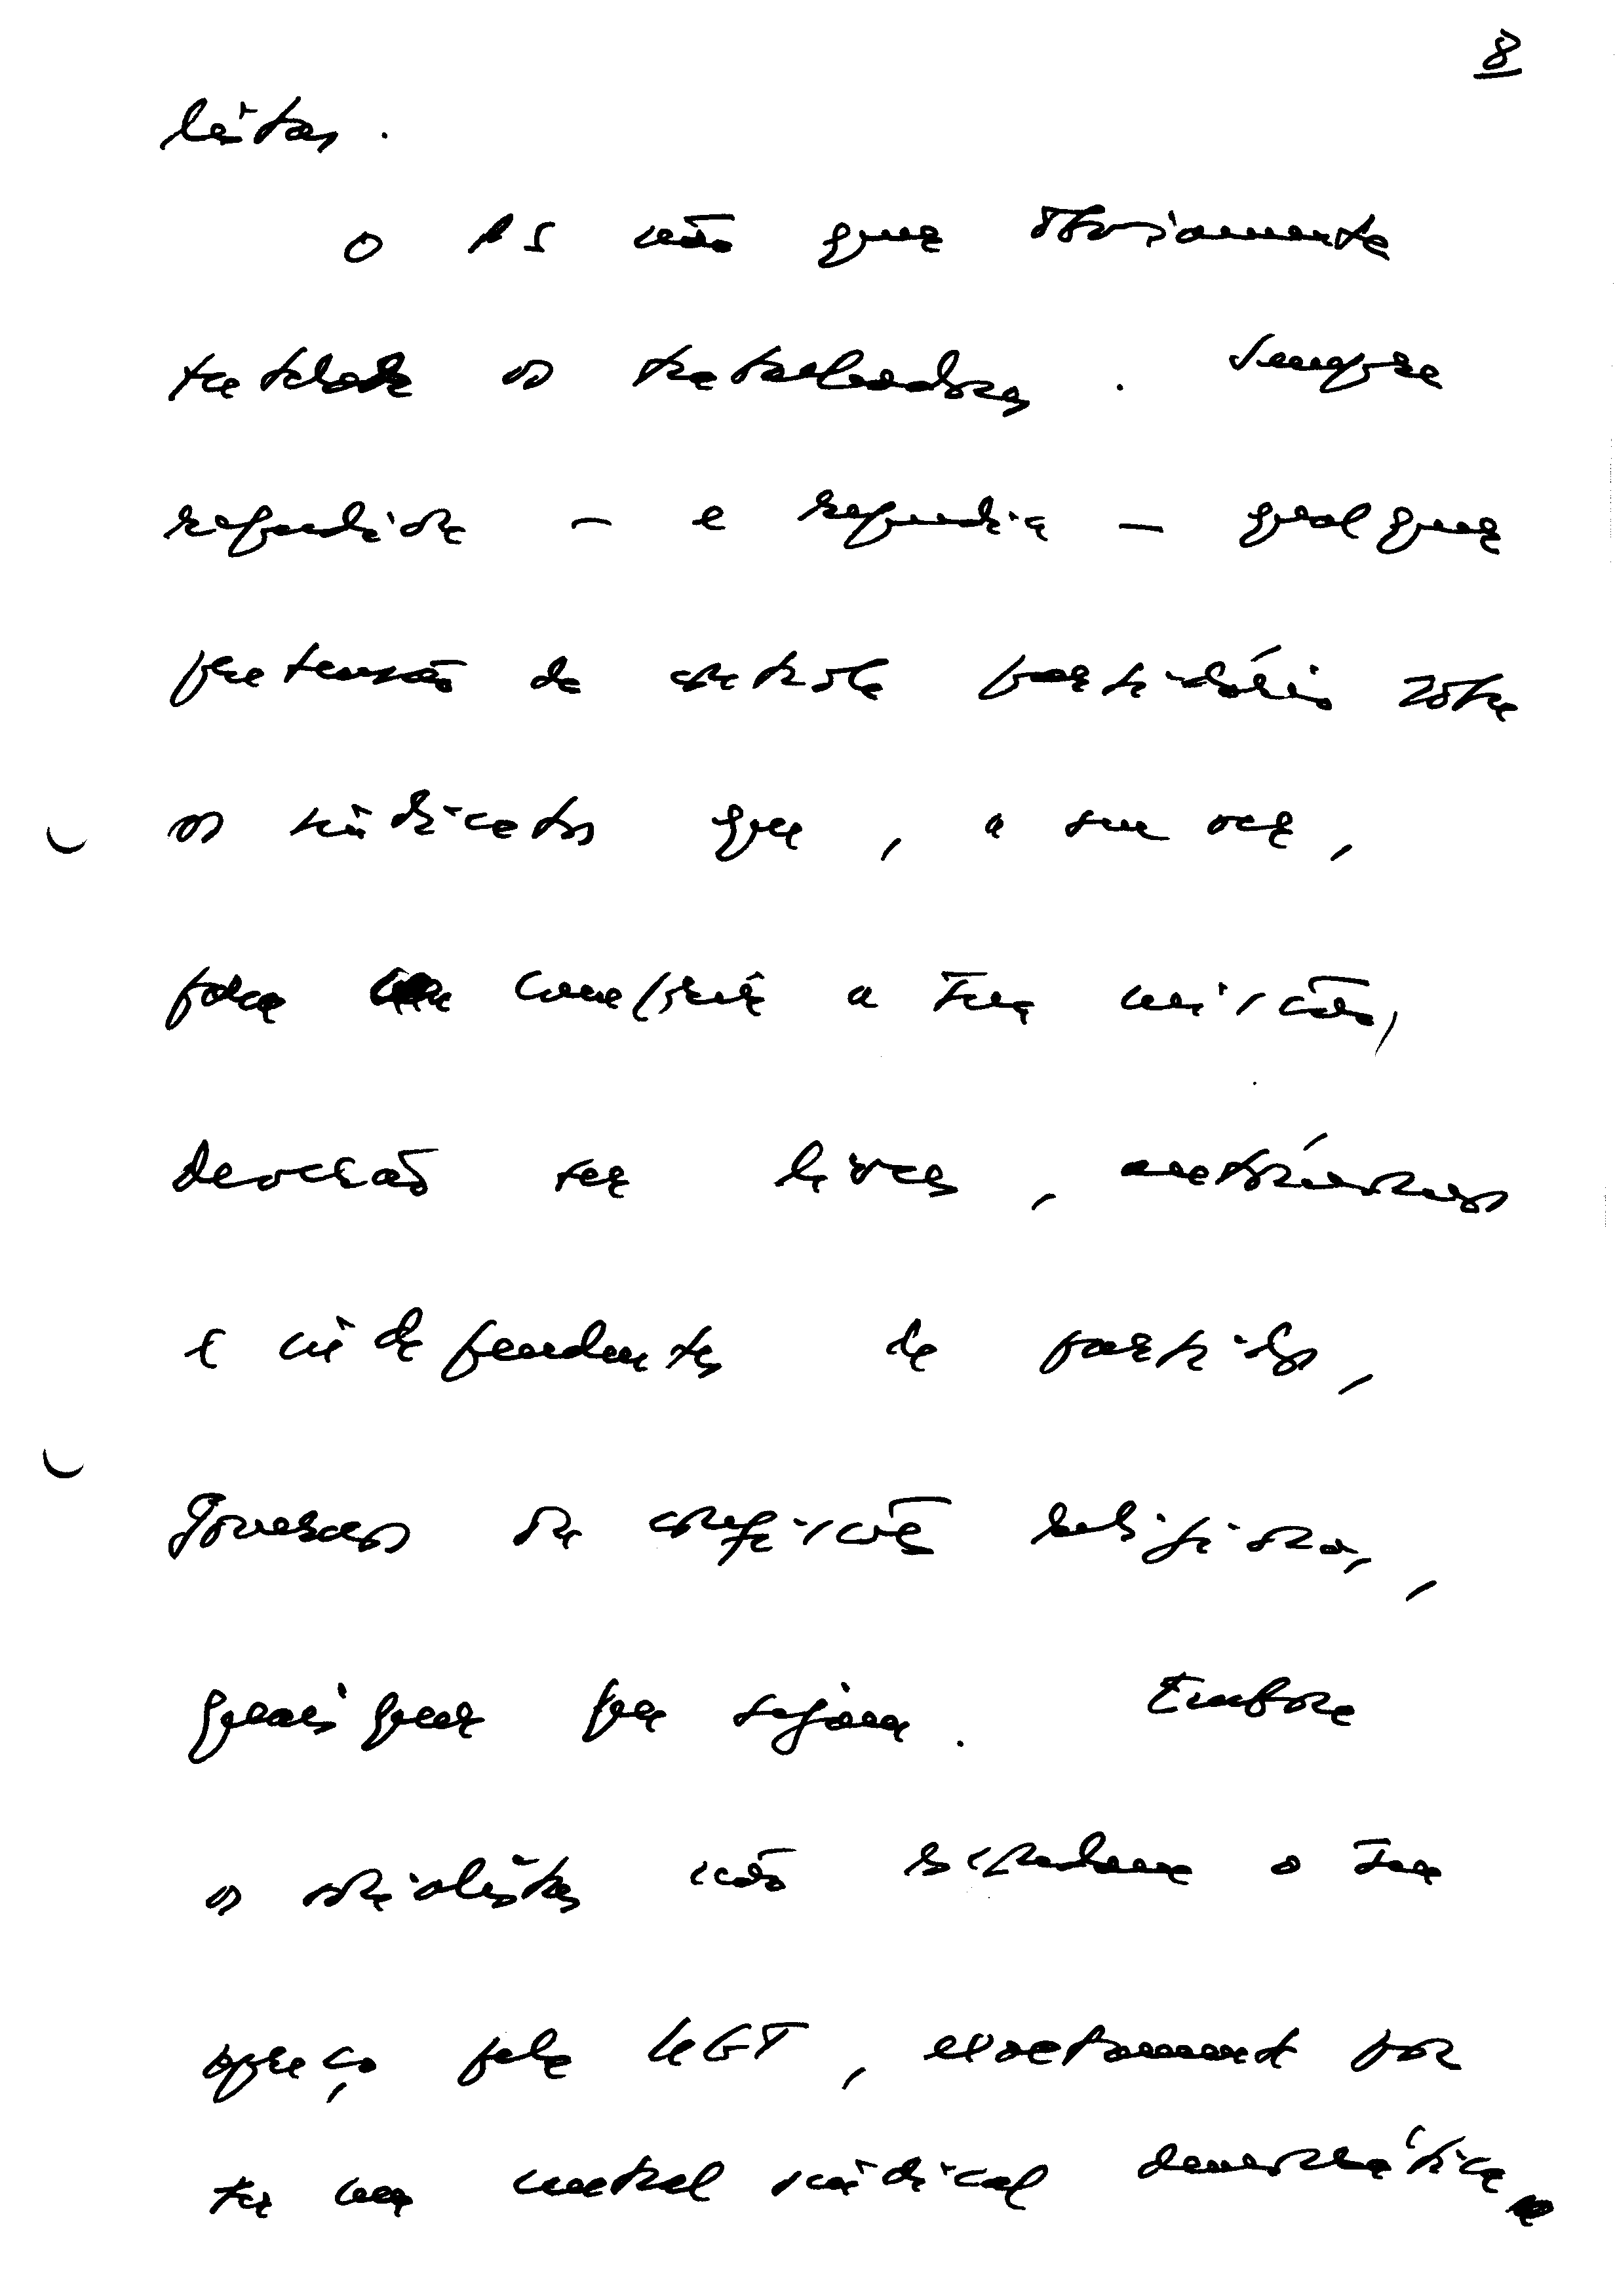 8
listas.
O PS não quer obviamente
tutelar os trabalhadores. Sempre
repudiou - e repudia - qualquer
pretensão de controle partidário sobre
os sindicatos que, a seu ver,
para cumprir a sua missão,
deverão ser livres, autónomos
e independentes de partidos,
Governos ou confissões religiosas,
quaisquer que sejam. Embora
os socialistas não escondam o seu
apreço pela UGT, exactamente por
ser uma central sindical democrática